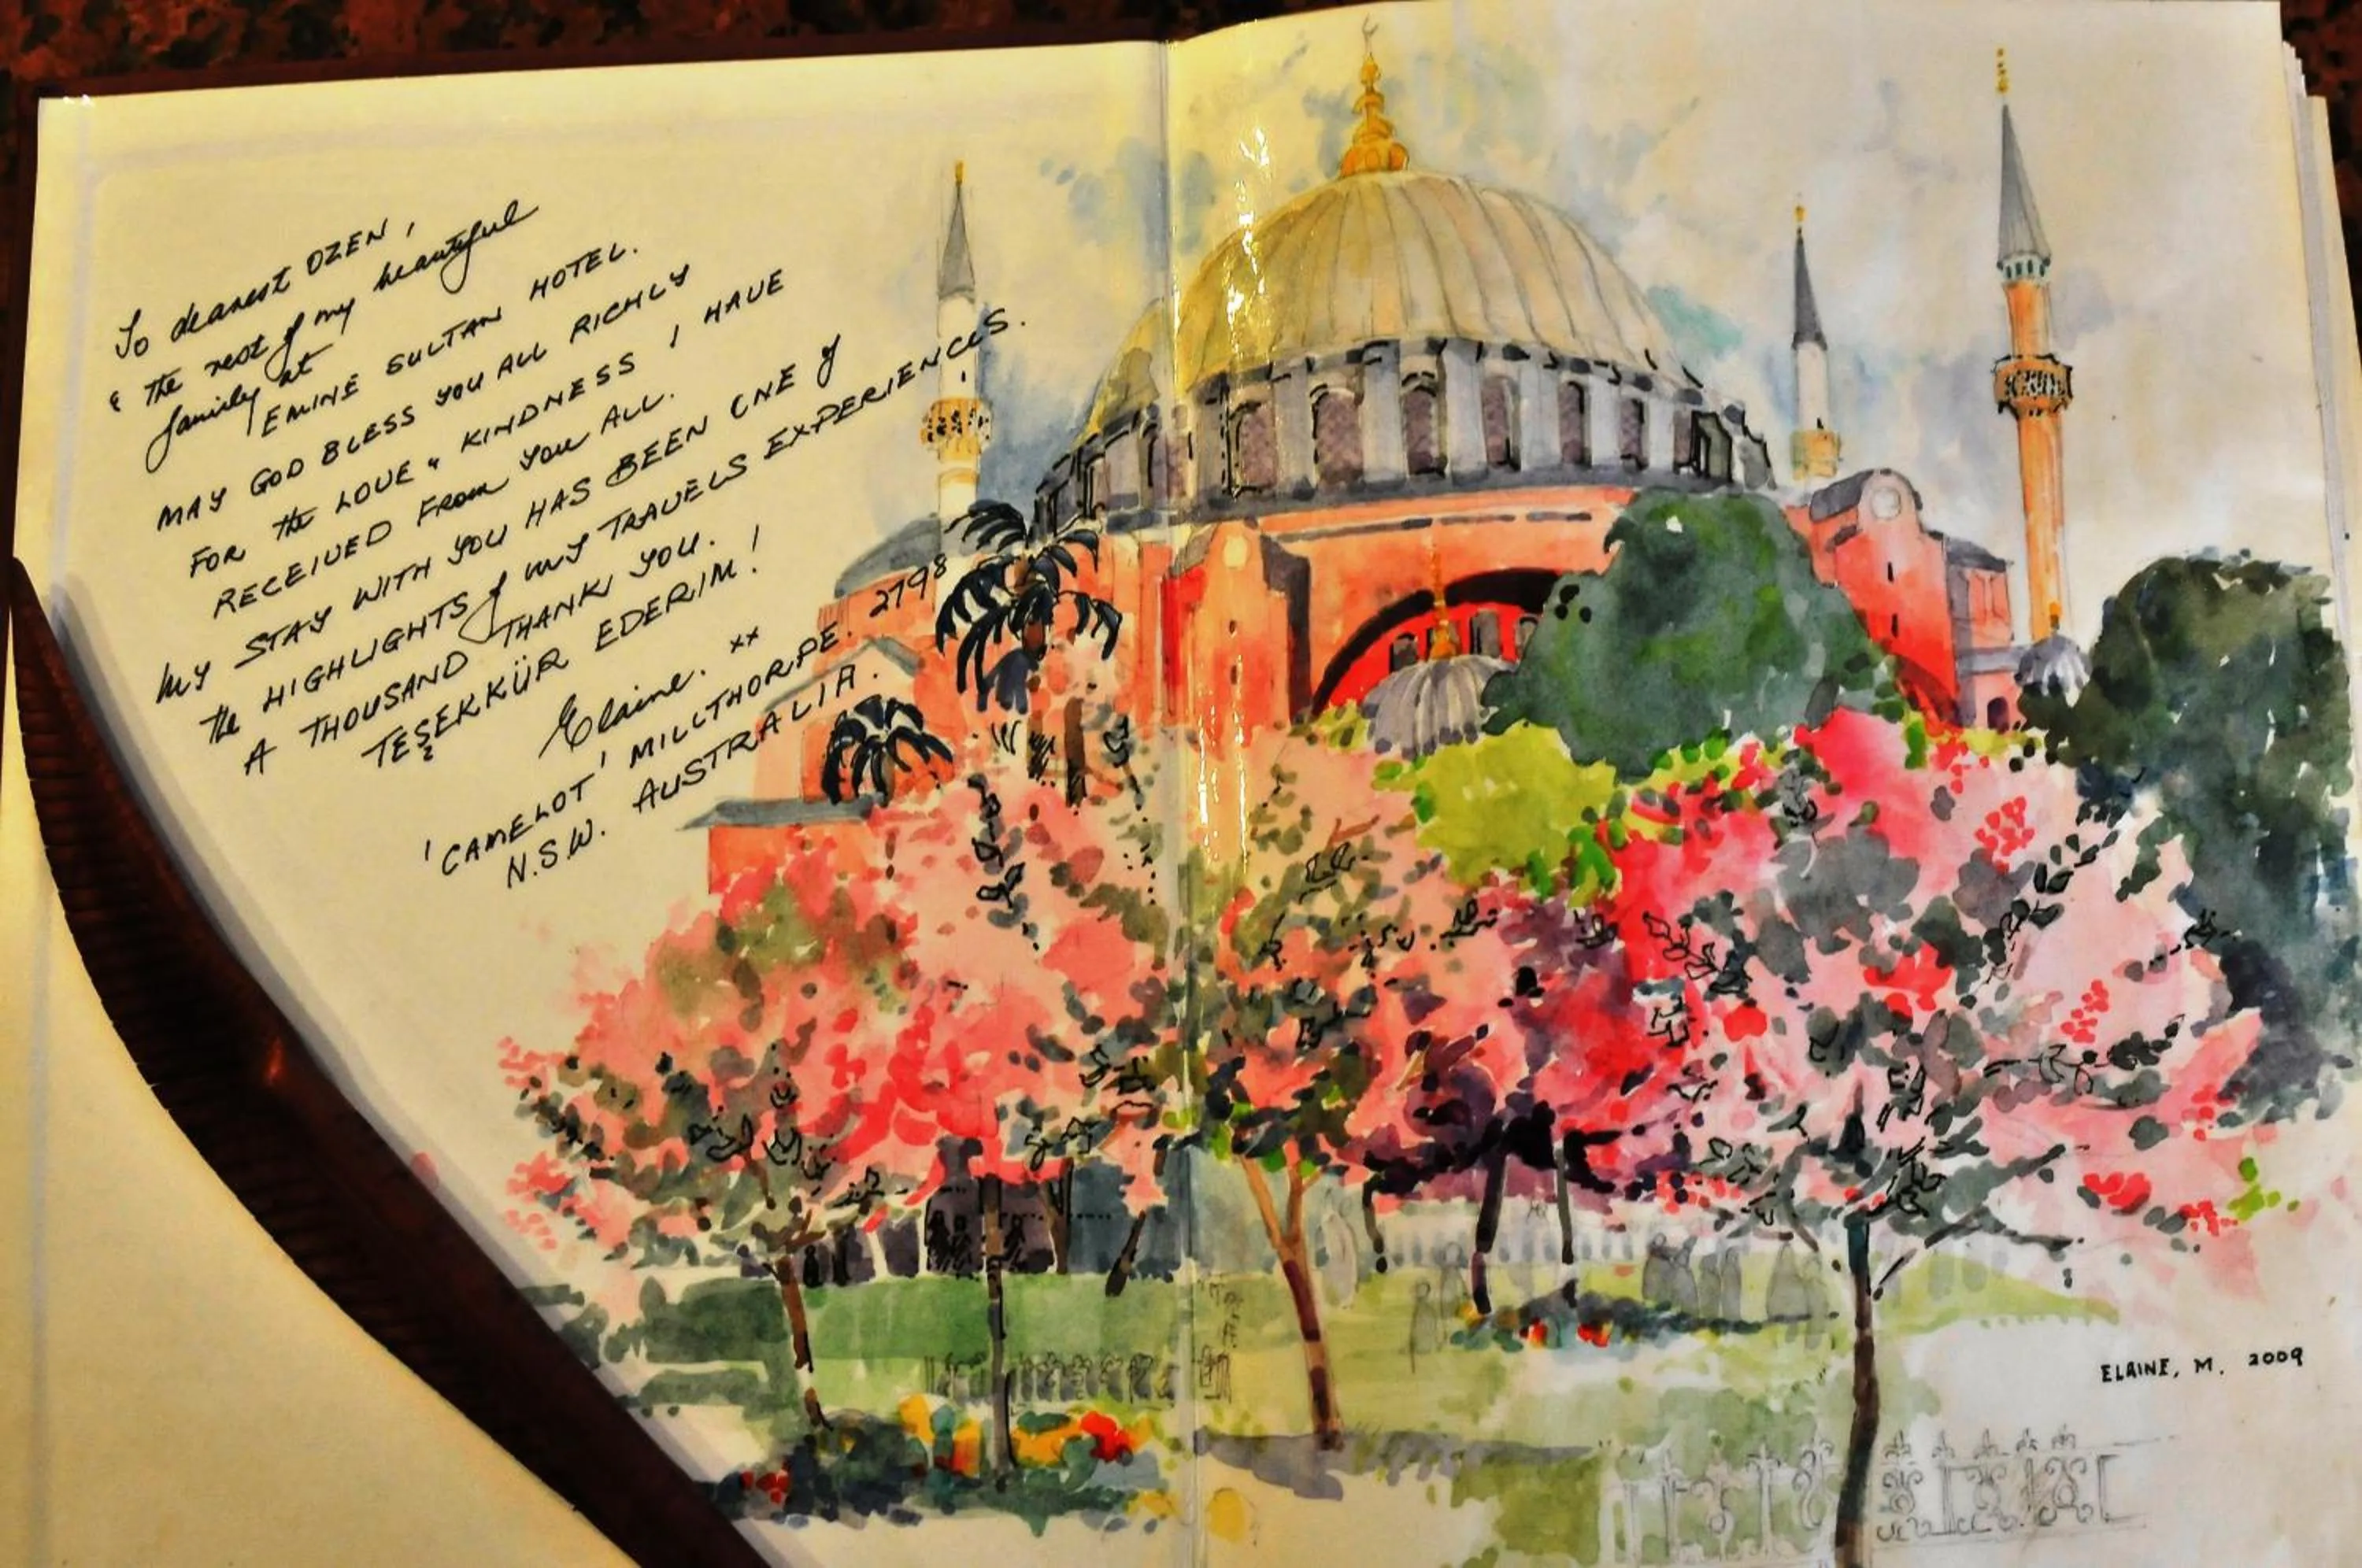 To dearest OZEN,
& the rest of my beautiful
family at
EMINE SULTAN HOTEL.
MAY GOD BLESS YOU ALL RICHLY
FOR the LOVE & KINDNESS I HAVE
RECEIVED FROM YOU ALL.
MY STAY WITH YOU HAS BEEN ONE of
the HIGHLIGHTS of MY TRAVELS EXPERIENCES.
A THOUSAND THANK YOU.
TEŞEKKÜR EDERIM!
Elaine. xx
'CAMELOT' MILLTHORPE. 2798
N.S.W. AUSTRALIA.
ELAINE, M. 2009